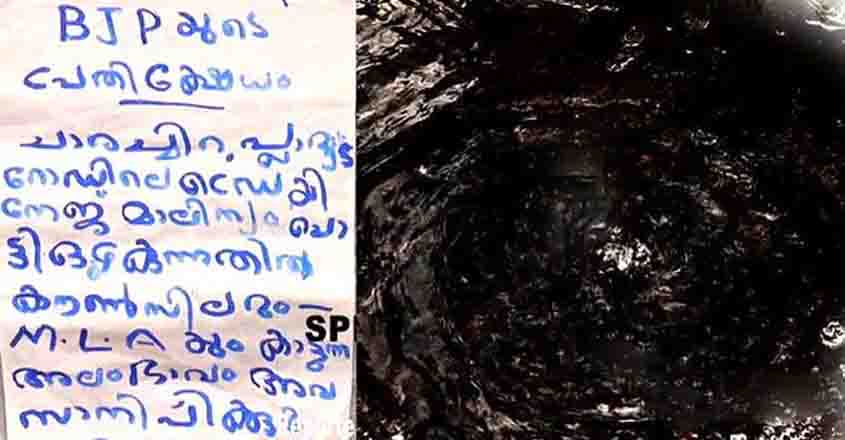 BJP യുടെ
പ്രതിഷേധം
ചാരച്ചിറ, പ്ലാമൂട്
റോഡിലെ ഡ്രൈ
നേജ് മാലിന്യം പൊ
ട്ടി ഒഴുകുന്നതിൽ
കൗൺസിലറും -
M.L.A യും കാട്ടുന്ന
അലംഭാവം അവ
സാനിപ്പിക്കുക
SP